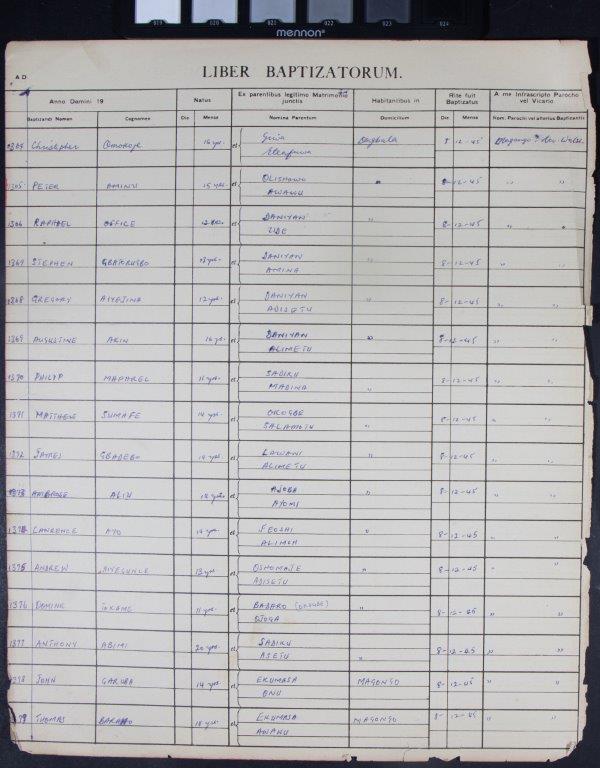 019 020 021 022 023 024
mennon
LIBER BAPTIZATORUM.
A D.
Anno Domini 19 Natus Ex parentibus legitimo Matrimonio junctis Habitantibus in Rite fuit Baptizatus A me Infrascripto Parocho vel Vicario
Baptizandi Nomen Cognomen Die Mense Nomina Parentum Domicilium Die Mense Nom. Parochi vel alterius Baptizantis
Christopher 16 yrs. et 8 12-45
1365 PETER AMINU 15 yrs. et OLISHOWO " 8-12-45 " "
AWAWU
1366 RAPHAEL OFFICE 12 yrs. et DANIYAN " 8-12-45 " "
1367 STEPHEN 13 yrs. et DANIYAN " 8-12-45 " "
AMINA
1368 GREGORY AIYEJINA 12 yrs. et DANIYAN " 8-12-45 " "
ADISETU
1369 AUGUSTINE AKIN 16 yrs. et DANIYAN " 8-12-45 " "
ALIMETU
1370 PHILIP 11 yrs. et SADIKU 8-12-45 " "
MADINA "
1371 MATTHEW SUMAFE 14 yrs. et OROGBE 8-12-45 " "
SALAMOTU "
1372 JAMES GBADEBO 14 yrs. et LAWANI " 8-12-45 " "
ALIMETU
1373 AMBROSE ALIU 18 yrs. et AJOBA " 8-12-45 " "
AYOMI
1374 LAWRENCE AYO 14 yrs. et " 8-12-45 " "
1375 ANDREW 13 yrs. et OSHOMAJE " 8-12-45 " "
ADISETU
1376 DOMINIC 11 yrs. et BADARO " 8-12-45 " "
OJOGA
1377 ANTHONY ABIMI 20 yrs. et SADIKU 8-12-45 " "
ASETU "
1378 JOHN GARUBA 14 yrs. et EKUMASA MAGONGO 8-12-45 " "
ONU
1379 THOMAS 18 yrs. et EKUMASA MAGONGO 8-12-45 " "
AWAWU